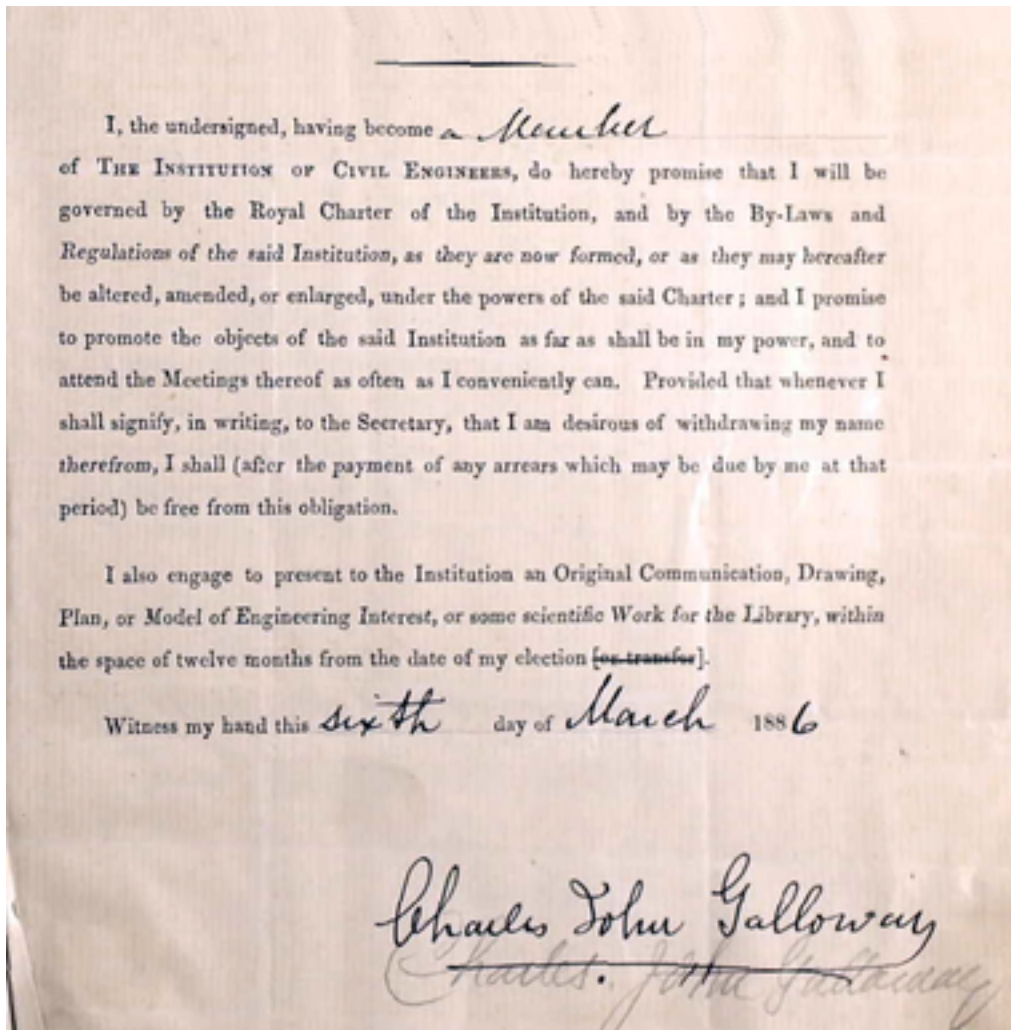 I, the undersigned, having become a Member
of THE INSTITUTION OF CIVIL ENGINEERS, do hereby promise that I will be
governed by the Royal Charter of the Institution, and by the By-Laws and
Regulations of the said Institution, as they are now formed, or as they may hereafter
be altered, amended, or enlarged, under the powers of the said Charter; and I promise
to promote the objects of the said Institution as far as shall be in my power, and to
attend the Meetings thereof as often as I conveniently can. Provided that whenever I
shall signify, in writing, to the Secretary, that I am desirous of withdrawing my name
therefrom, I shall (after the payment of any arrears which may be due by me at that
period) be free from this obligation.
I also engage to present to the Institution an Original Communication, Drawing,
Plan, or Model of Engineering Interest, or some scientific Work for the Library, within
the space of twelve months from the date of my election [or transfer].
Witness my hand this sixth day of March 1886
Charles John Galloway
Charles. John Galloway